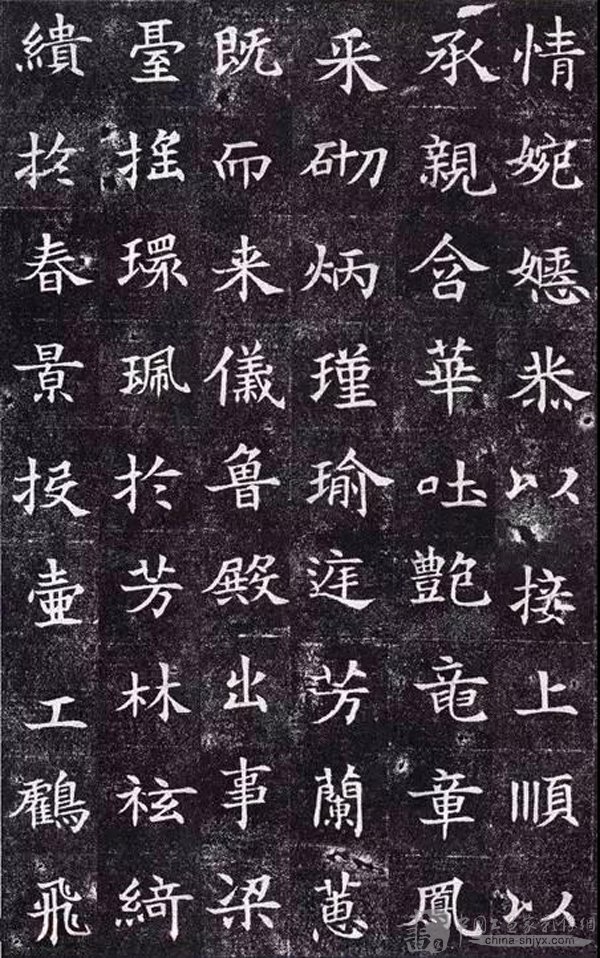 情婉嫕恭以接上順以
承親含華吐艷竜章鳳
采砌炳瑾瑜庭芳蘭蕙
既而来儀魯殿出事梁
臺搖環珮於芳林袨綺
繢於春景投壺工鸖飛
china-snjyx.com